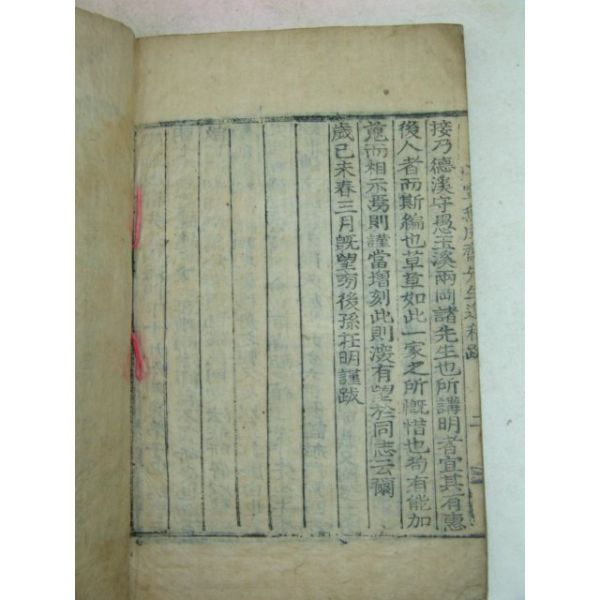 接乃德溪守愚玉溪兩岡諸先生也所講明者宜其有惠
後人者而斯編也草草如此一家之所慨惜也苟有能加
蒐而相示焉則謹當增刻此則深有望於同志云爾
歲己未春三月旣望旁後孫在明謹跋
先生遺稿跋